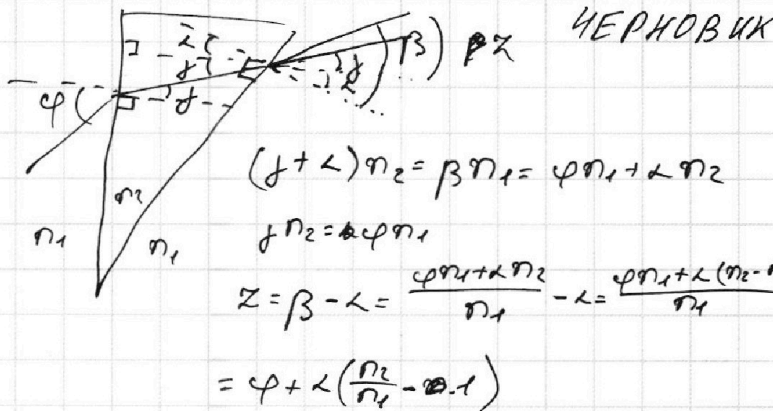 ЧЕРНОВИК
α
γ
γ
φ
β
z
γ
α
n₂
n₁
n₁
(γ + α) n₂ = β n₁ = φ n₁ + α n₂
γ n₂ = φ n₁
z = β - α = (φ n₁ + α n₂)/n₁ - α = (φ n₁ + α (n₂ -)/n₁
= φ + α (n₂/n₁ - 1)